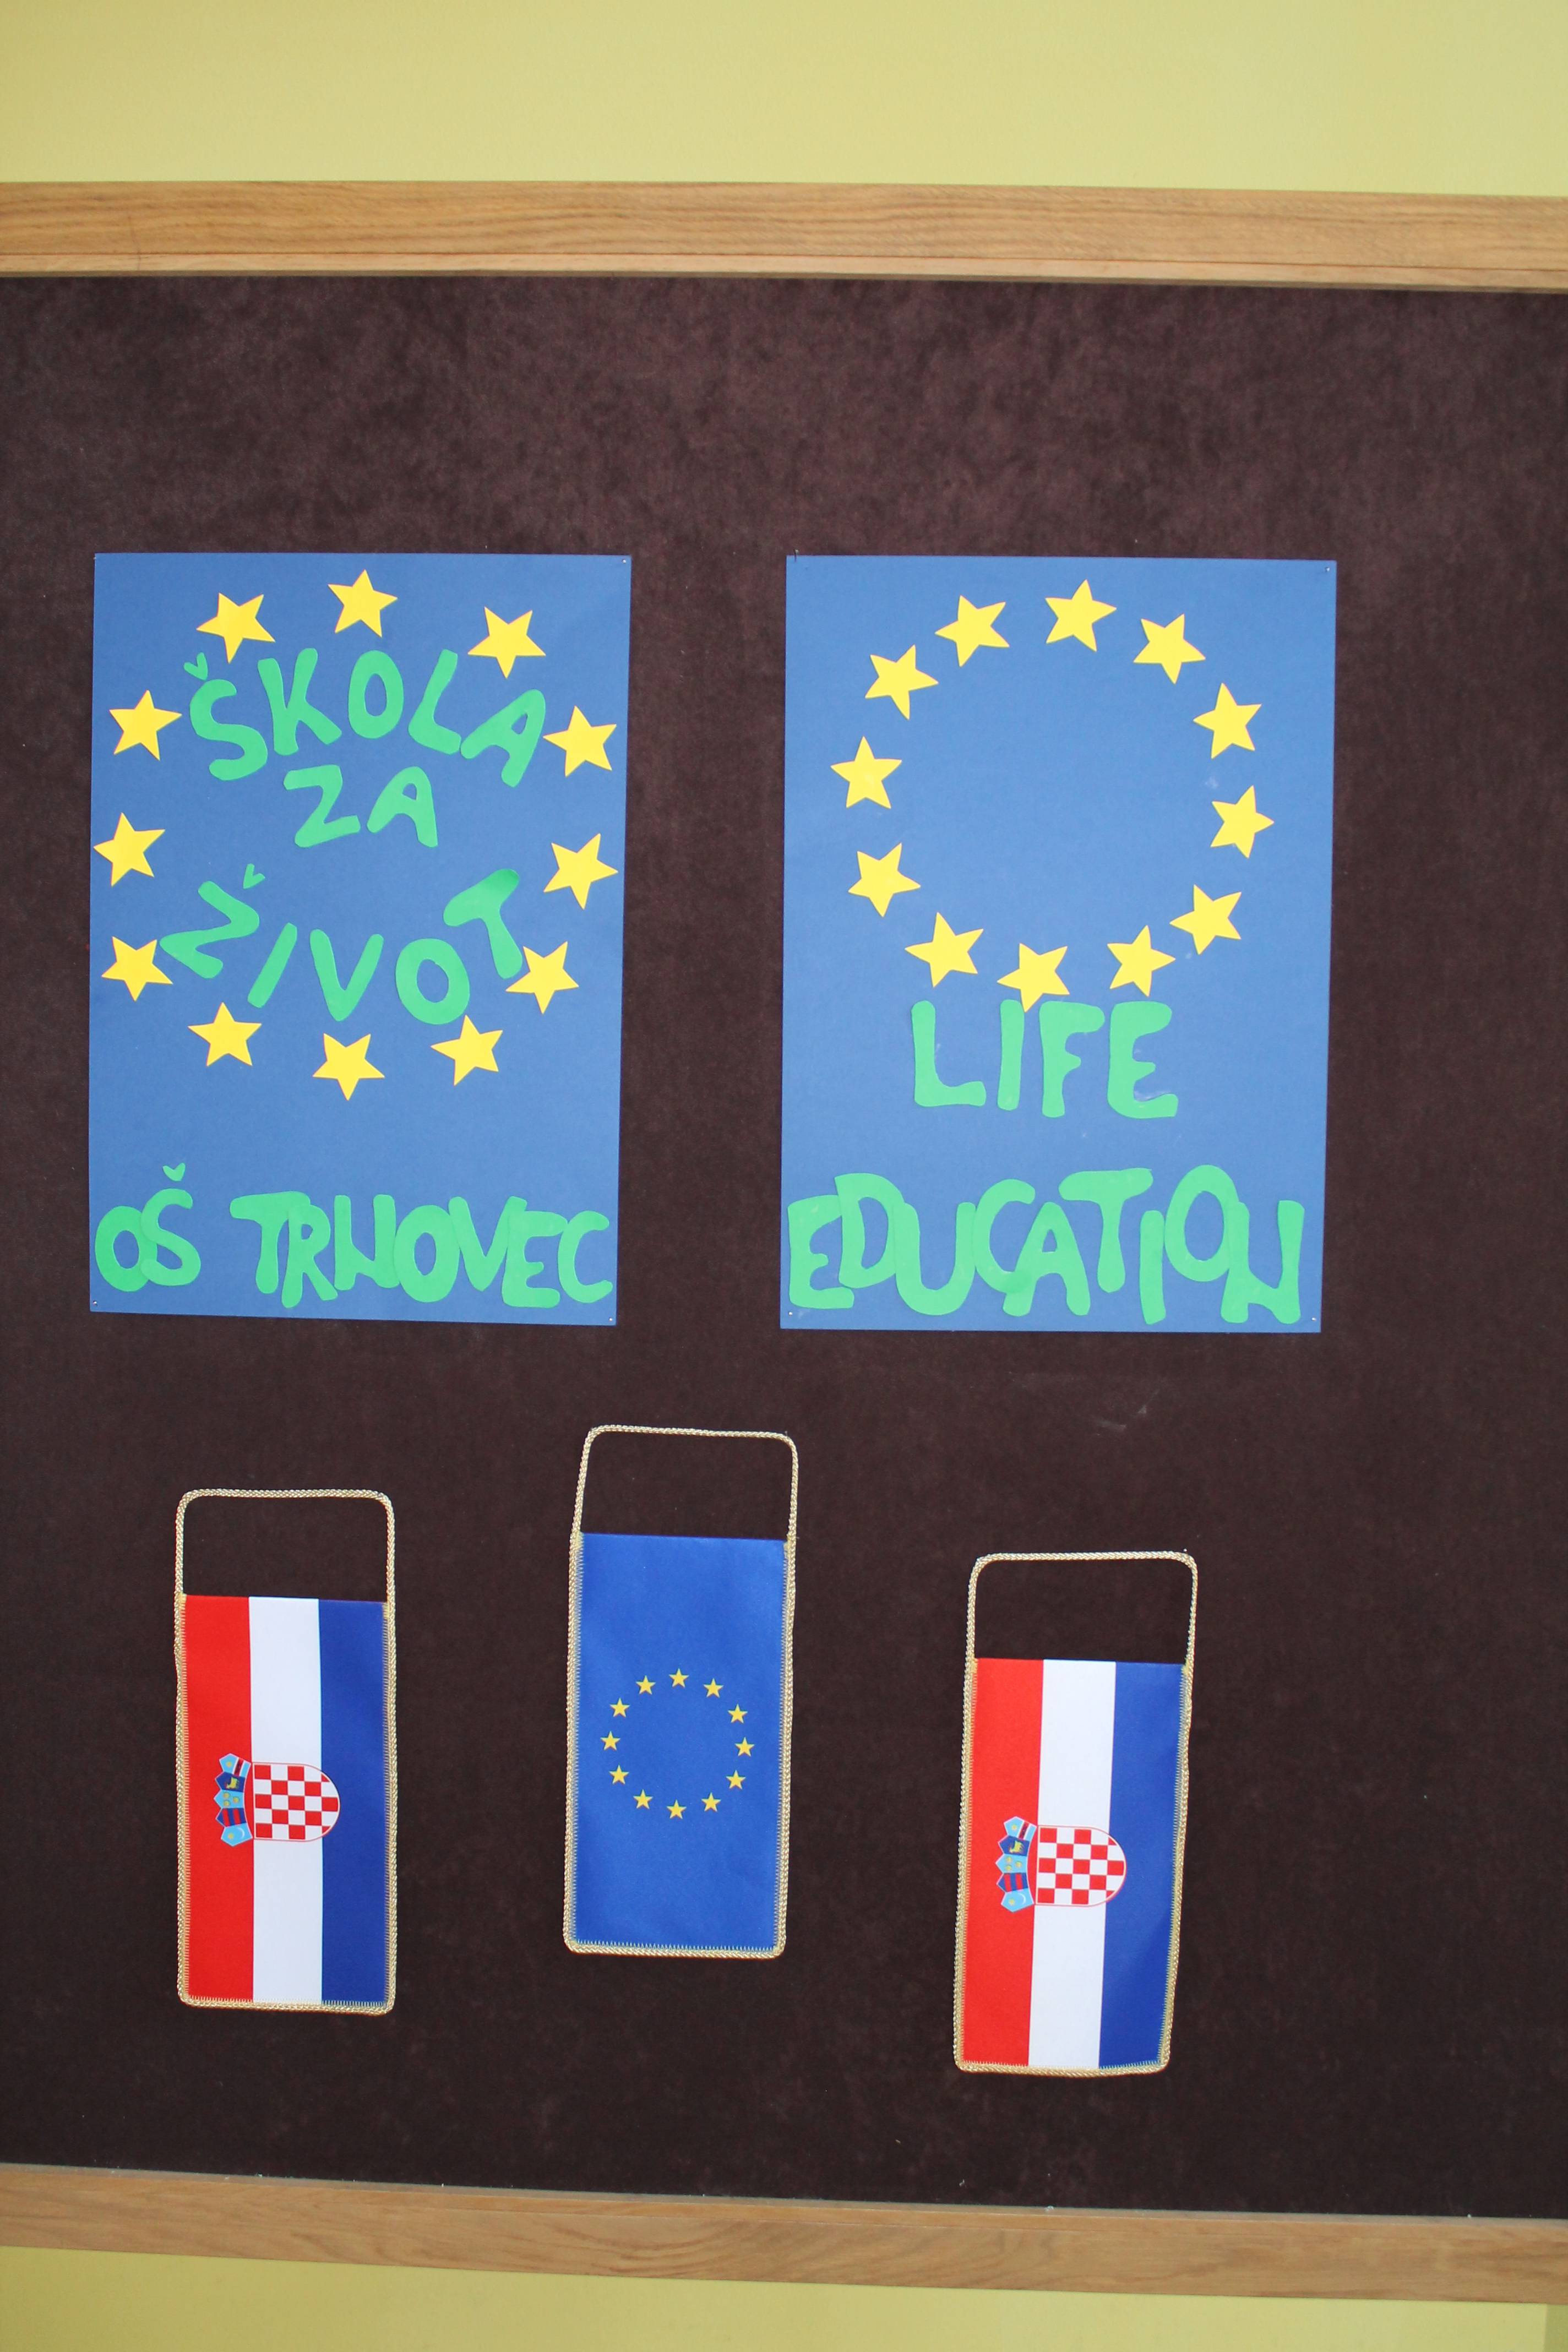 ŠKOLA
ZA
ŽIVOT
OŠ TRNOVEC
LIFE
EDUCATION